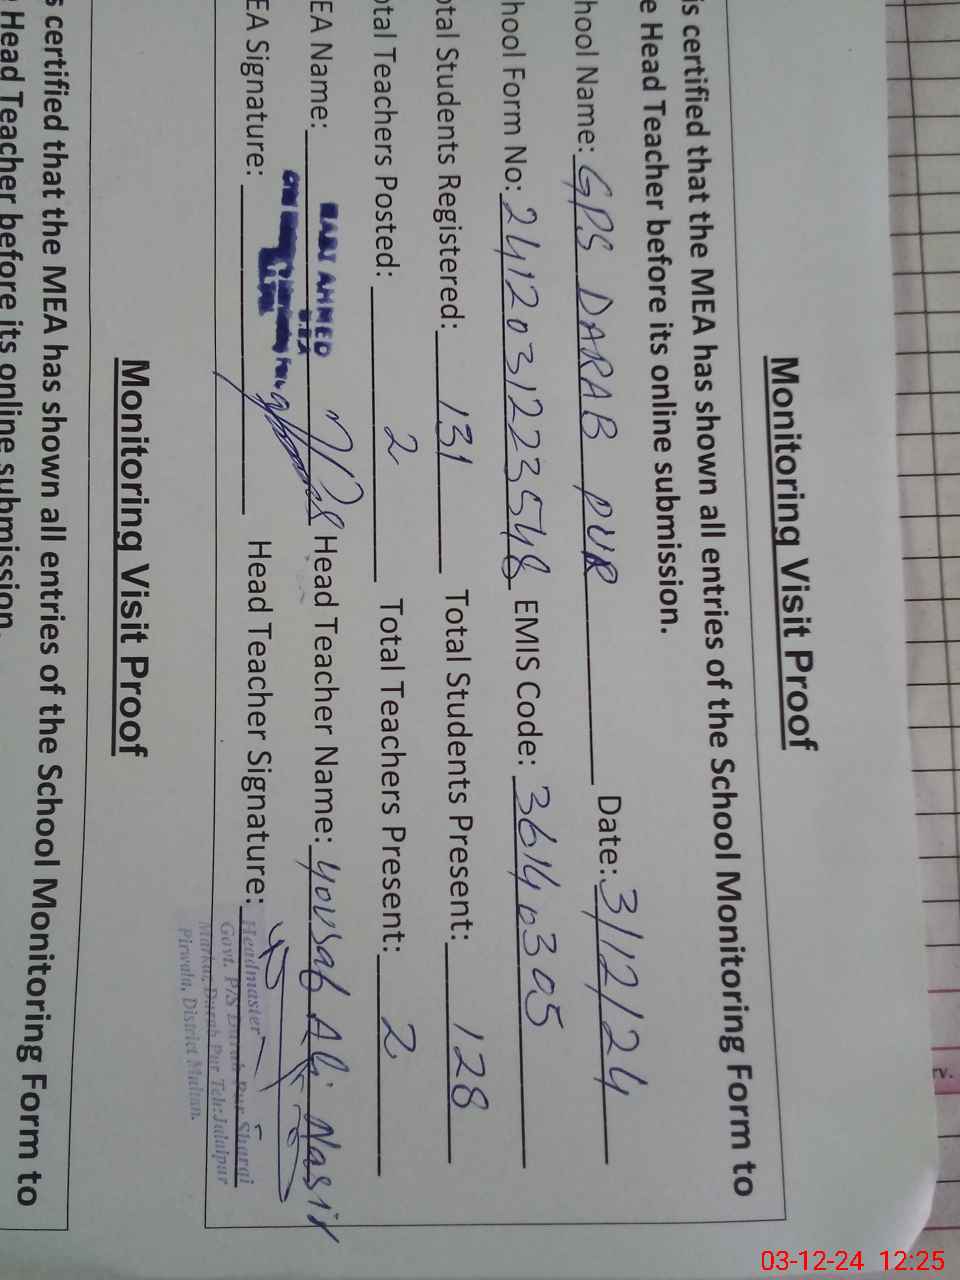 Monitoring Visit Proof
is certified that the MEA has shown all entries of the School Monitoring Form to
e Head Teacher before its online submission.
hool Name: GPS DARAB PUR Date: 3/12/24
hool Form No: 2412031223548 EMIS Code: 36140305
otal Students Registered: 131 Total Students Present: 128
otal Teachers Posted: 2 Total Teachers Present: 2
EA Name: AHMED Head Teacher Name: yousaf Ali Nasir
EA Signature: Head Teacher Signature:
Headmaster
Govt. P/S Darab Pur Sharqi
Markaz, Darab Pur Teh: Jalalpur
Pirwala, District Multan.
Monitoring Visit Proof
s certified that the MEA has shown all entries of the School Monitoring Form to
Head Teacher before its online submission.
03-12-24 12:25